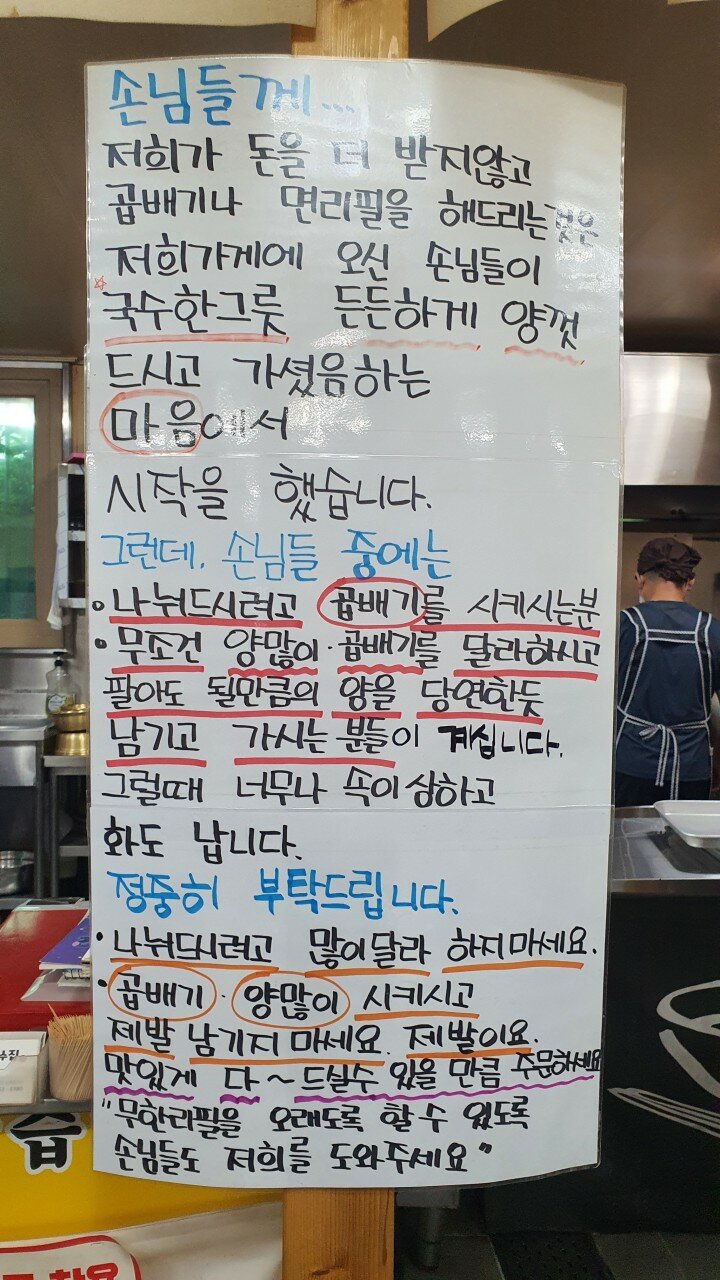 손님들께...
저희가 돈을 더 받지않고
곱배기나 면리필을 해드리는것은
저희가게에 오신 손님들이
☆국수한그릇 든든하게 양껏
드시고 가셨음하는
마음에서
시작을 했습니다.
그런데, 손님들 중에는
• 나눠드시려고 곱배기를 시키시는분
• 무조건 양많이·곱배기를 달라하시고
팔아도 될만큼의 양을 당연한듯
남기고 가시는 분들이 계십니다.
그럴때 너무나 속이상하고
화도 납니다.
정중히 부탁드립니다.
• 나눠드시려고 많이달라 하지마세요.
• 곱배기·양많이 시키시고
제발 남기지 마세요. 제발이요.
맛있게 다~드실수 있을 만큼 주문하세요
"무한리필을 오래도록 할 수 있도록
손님들도 저희를 도와주세요"
습